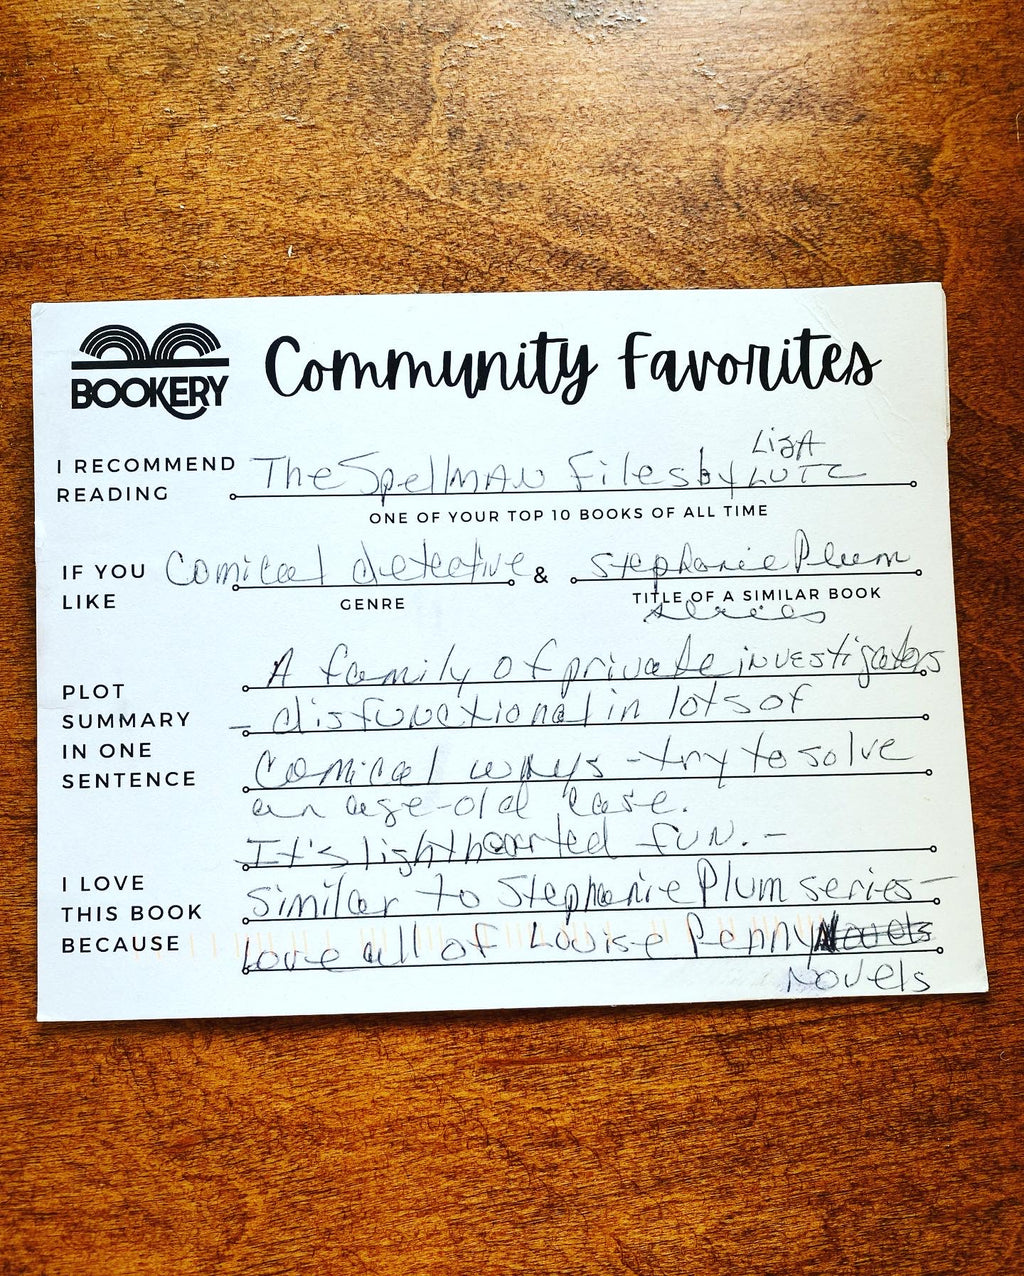 BOOKERY
Community Favorites
I RECOMMEND READING
The Spellman Files by Lisa Lutz
ONE OF YOUR TOP 10 BOOKS OF ALL TIME
IF YOU LIKE
Comical detective & Stephanie Plum series
GENRE
TITLE OF A SIMILAR BOOK
PLOT SUMMARY IN ONE SENTENCE
A family of private investigators
- disfunctional in lots of
comical ways - try to solve
an age-old case.
I LOVE THIS BOOK BECAUSE
It's lighthearted fun. -
Similar to Stephanie Plum series -
Love all of Louise Penny
Novels